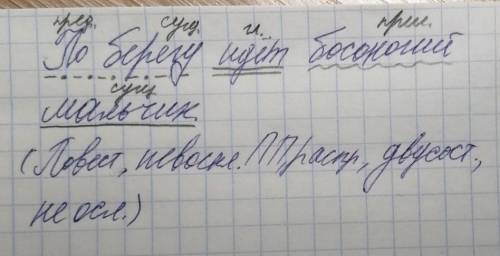 пред. сущ. гл. прил.
По берегу идёт босоногий
сущ.
мальчик.
(Повест., невоскл. ПП, распр., двусост.,
не осл.)